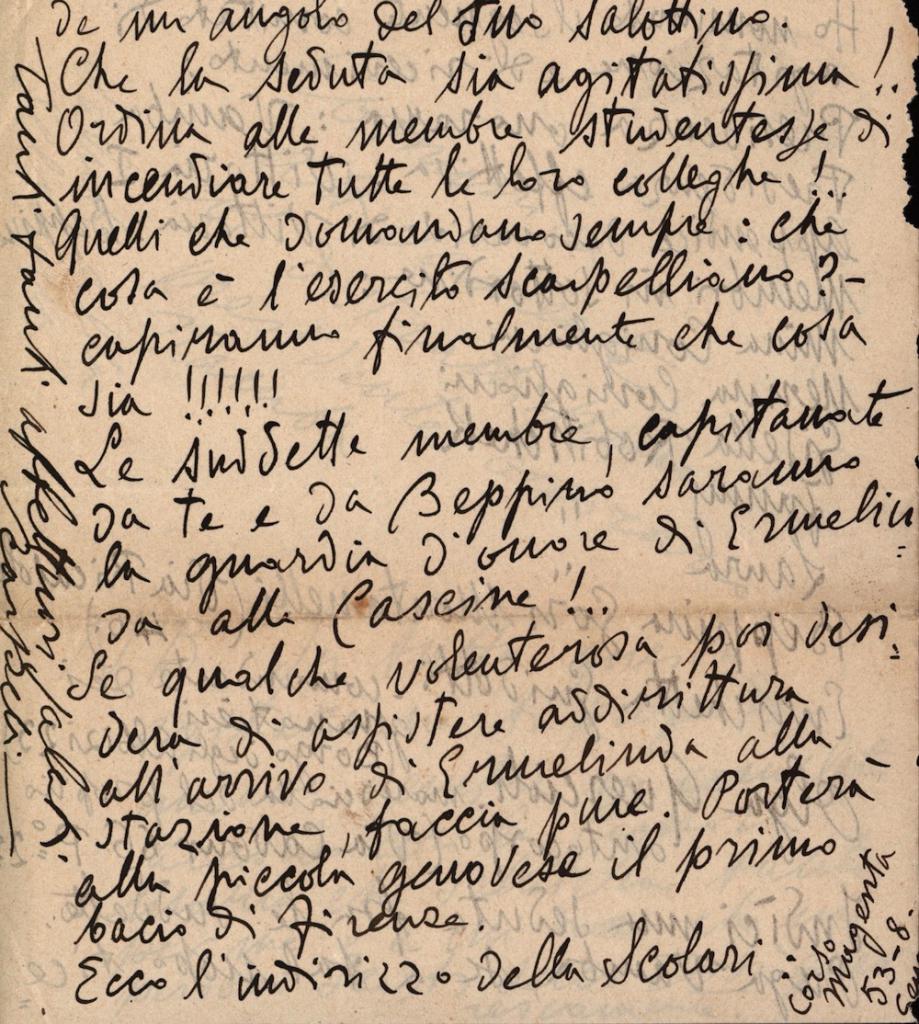 de un angolo del tuo salottino.
Che la seduta sia agitatissima!..
Ordina alle membre studentesse di
incendiare tutte le loro colleghe!..
Quelli che domandano sempre: che
cosa è l'esercito scarpelliano? -
capiranno finalmente che cosa
sia !!!!!!
Le suddette membre, capitanate
da te e da Beppino saranno
la guardia d'onore di Ermelin=
da alle Cascine!..
Se qualche volenterosa poi desi=
dera di assistere addirittura
all'arrivo di Ermelinda alla
stazione, faccia pure. Porterà
alla piccola genovese il primo
bacio di Firenze.
Ecco l'indirizzo della Scolari:
Corso
Magenta
53-8-
Tanti tanti affettuosi saluti.
Scarpelli